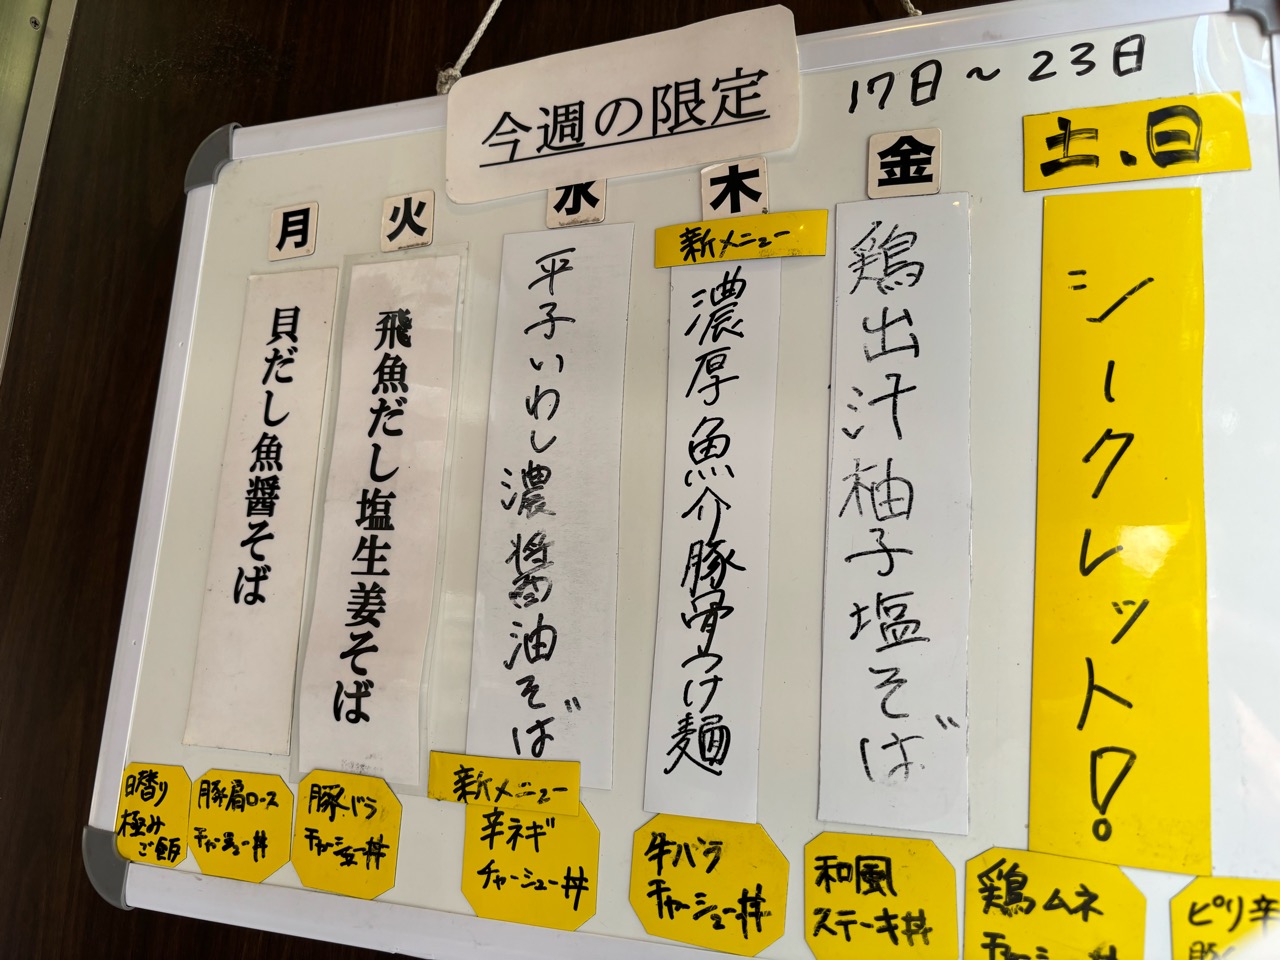 今週の限定
17日～23日
月
火
水
木
金
土、日
貝だし魚醤そば
飛魚だし塩生姜そば
平子いわし濃醤油そば
新メニュー
濃厚魚介豚骨つけ麺
鶏出汁柚子塩そば
シークレット!
日替り
極み
ご飯
豚肩ロース
チャーシュー丼
豚バラ
チャーシュー丼
新メニュー
辛ネギ
チャーシュー丼
牛バラ
チャーシュー丼
和風
ステーキ丼
鶏ムネ
チャーシュー丼
ピリ辛